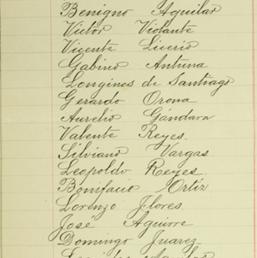 Benigno Aguilar
Victor Violante
Vicente Licerio
Gabino Antuna
Longines de Santiago
Gerardo Orona
Aurelio Gándara
Valente Reyes
Silviano Vargas
Leopoldo Reeyes
Bonifacio Ortíz
Lorenzo Flores
José Aguirre
Domingo Juarez